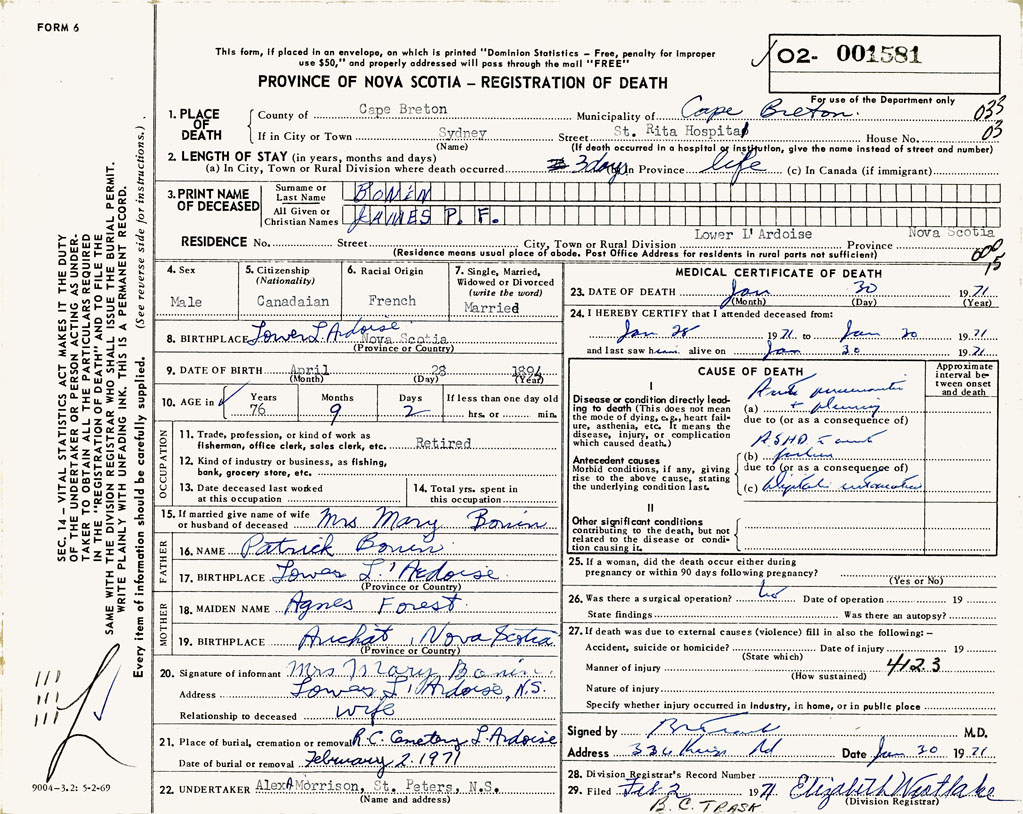 FORM 6
This form, if placed in an envelope, on which is printed "Dominion Statistics – Free, penalty for improper
use $50," and properly addressed will pass through the mail "FREE"
02- 001581
For use of the Department only
PROVINCE OF NOVA SCOTIA – REGISTRATION OF DEATH
1. PLACE OF DEATH
County of Cape Breton Municipality of Cape Breton. 033
If in City or Town Sydney Street St. Rita Hospital House No. 03
(Name) (If death occurred in a hospital or institution, give the name instead of street and number)
2. LENGTH OF STAY (in years, months and days)
(a) In City, Town or Rural Division where death occurred 3 days (b) In Province life (c) In Canada (if immigrant)
3. PRINT NAME OF DECEASED
Surname or Last Name BONIN
All Given or Christian Names JAMES P. F.
RESIDENCE No. Street City, Town or Rural Division Lower L'Ardoise Province Nova Scotia
(Residence means usual place of abode. Post Office Address for residents in rural parts not sufficient)
15
4. Sex Male
5. Citizenship (Nationality) Canadaian
6. Racial Origin French
7. Single, Married, Widowed or Divorced (write the word) Married
8. BIRTHPLACE Lower L'Ardoise Nova Scotia
(Province or Country)
9. DATE OF BIRTH April 28 1894
(Month) (Day) (Year)
10. AGE in Years 76 Months 9 Days 2 If less than one day old hrs. or min.
OCCUPATION
11. Trade, profession, or kind of work as
fisherman, office clerk, sales clerk, etc. Retired
12. Kind of industry or business, as fishing,
bank, grocery store, etc.
13. Date deceased last worked
at this occupation
14. Total yrs. spent in
this occupation
15. If married give name of wife
or husband of deceased Mrs Mary Bonin
FATHER
16. NAME Patrick Bonin
17. BIRTHPLACE Lower L'Ardoise
(Province or Country)
MOTHER
18. MAIDEN NAME Agnes Forest
19. BIRTHPLACE Arichat, Nova Scotia
(Province or Country)
20. Signature of informant Mrs Mary Bonin
Address Lower L'Ardoise, N.S.
Relationship to deceased wife
21. Place of burial, cremation or removal R.C. Cemetery L'Ardoise
Date of burial or removal February 2, 1971
22. UNDERTAKER Alex A Morrison, St. Peters, N.S.
(Name and address)
MEDICAL CERTIFICATE OF DEATH
23. DATE OF DEATH Jan 30 1971
(Month) (Day) (Year)
24. I HEREBY CERTIFY that I attended deceased from:
Jan 28 1971 to Jan 30 1971
and last saw him alive on Jan 30 1971
CAUSE OF DEATH
Approximate interval between onset and death
I
Disease or condition directly leading to death (This does not
mean the mode of dying, e.g., heart failure, asthenia, etc. It means the
disease, injury, or complication
which caused death.)
(a)
due to (or as a consequence of)
Antecedent causes
Morbid conditions, if any, giving
rise to the above cause, stating
the underlying condition last.
(b) ASHD
due to (or as a consequence of)
(c) Digitalis intoxication
II
Other significant conditions
contributing to the death, but not
related to the disease or condition
causing it.
25. If a woman, did the death occur either during
pregnancy or within 90 days following pregnancy?
(Yes or No)
26. Was there a surgical operation? No Date of operation 19
State findings Was there an autopsy?
27. If death was due to external causes (violence) fill in also the following: –
Accident, suicide or homicide? Date of injury 19
(State which)
Manner of injury 4123
(How sustained)
Nature of injury
Specify whether injury occurred in industry, in home, or in public place
Signed by M.D.
Address 336 Kings Rd Date Jan 30 1971
28. Division Registrar's Record Number
29. Filed Feb 2 1971 Elizabeth Westlake
(Division Registrar)
B.C. TRASK
SEC. 14 – VITAL STATISTICS ACT MAKES IT THE DUTY
OF THE UNDERTAKER OR PERSON ACTING AS UNDER-
TAKER TO OBTAIN ALL THE PARTICULARS REQUIRED
IN THE "REGISTRATION OF DEATH" AND TO FILE THE
SAME WITH THE DIVISION REGISTRAR WHO SHALL ISSUE THE BURIAL PERMIT.
WRITE PLAINLY WITH UNFADING INK. THIS IS A PERMANENT RECORD.
Every item of information should be carefully supplied. (See reverse side for instructions.)
9004-3.2: 5-2-69